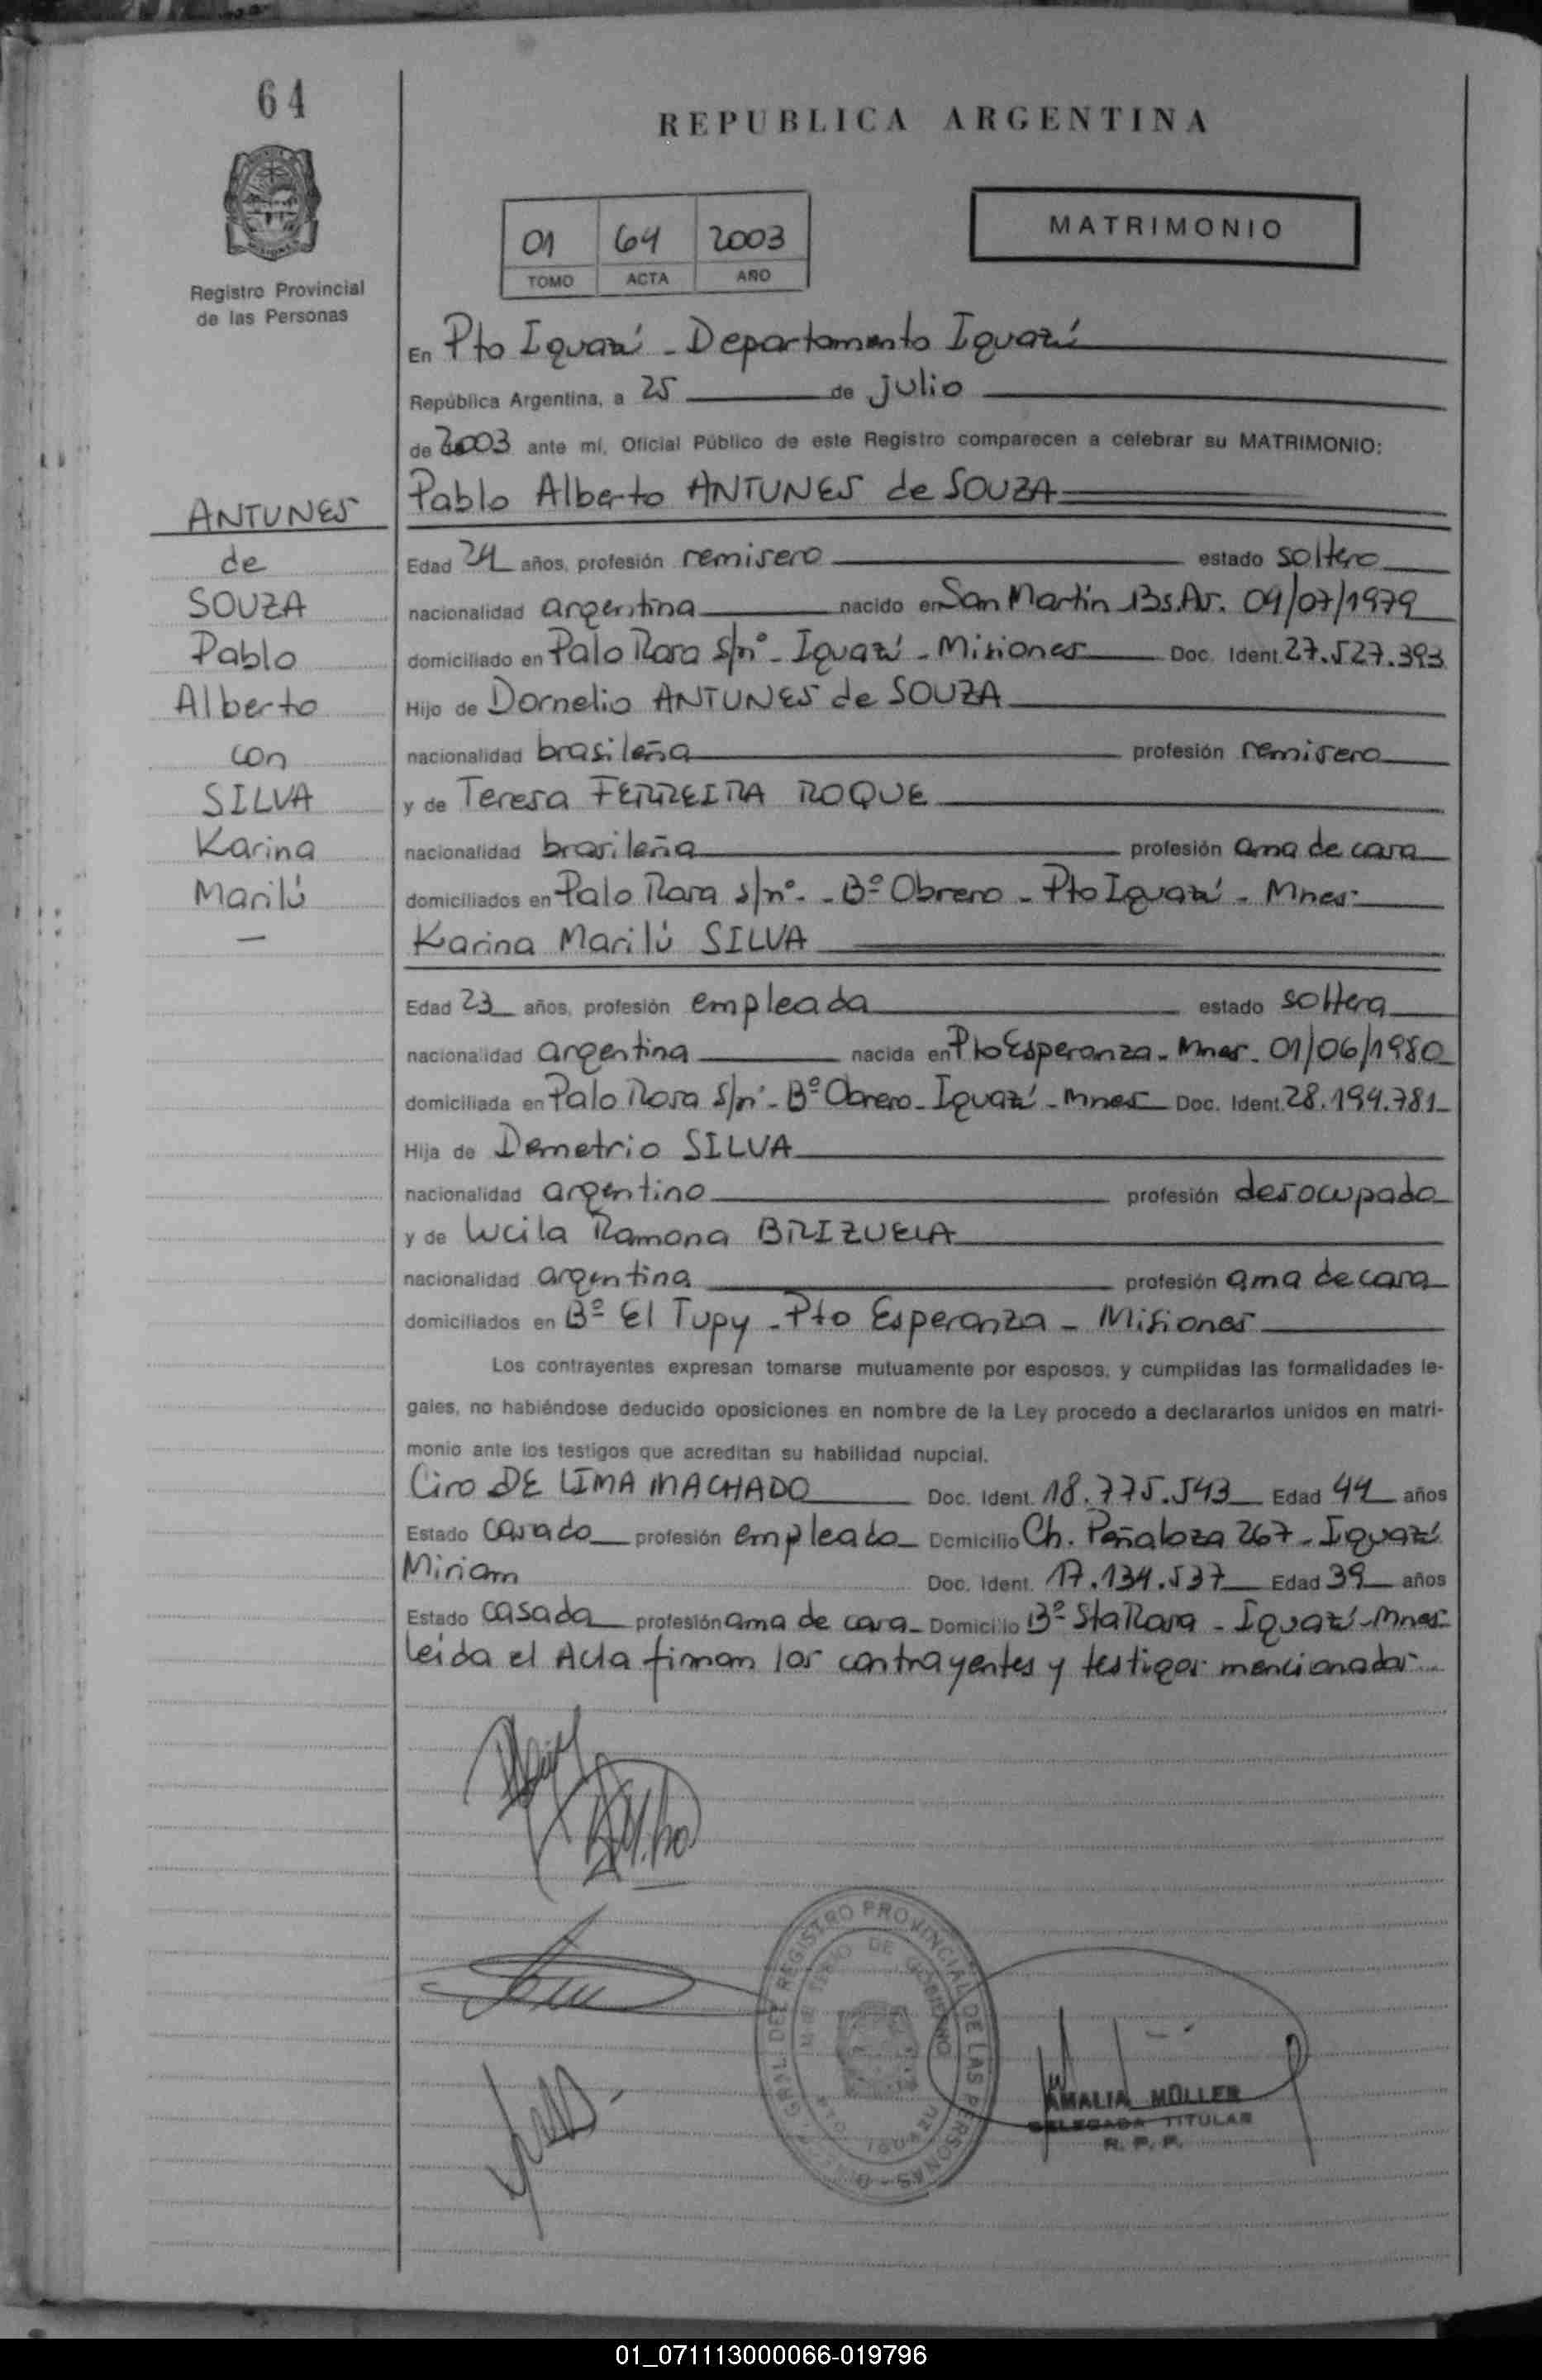 64
REPUBLICA ARGENTINA
Registro Provincial
de las Personas
01 64 2003
TOMO ACTA AÑO
MATRIMONIO
En Pto Iguazú - Departamento Iguazú
República Argentina, a 25 de julio
de 2003 ante mí, Oficial Público de este Registro comparecen a celebrar su MATRIMONIO:
Pablo Alberto ANTUNES de SOUZA
ANTUNES
de
SOUZA
Pablo
Alberto
con
SILVA
Karina
Marilú
—
Edad 24 años, profesión remisero estado soltero
nacionalidad argentina nacido en San Martín Bs.As. 09/07/1979
domiciliado en Palo Rosa s/nº - Iguazú - Misiones Doc. Ident. 27.527.393
Hijo de Dornelio ANTUNES de SOUZA
nacionalidad brasileña profesión remisero
y de Teresa FERREIRA ROQUE
nacionalidad brasileña profesión ama de casa
domiciliados en Palo Rosa s/nº. - Bº Obrero - Pto Iguazú - Mnes.
Karina Marilú SILVA
Edad 23 años, profesión empleada estado soltera
nacionalidad argentina nacida en Pto Esperanza - Mnes. 01/06/1980
domiciliada en Palo Rosa s/nº - Bº Obrero - Iguazú - Mnes Doc. Ident. 28.194.781
Hija de Demetrio SILVA
nacionalidad argentino profesión desocupado
y de Lucila Ramona BRIZUELA
nacionalidad argentina profesión ama de casa
domiciliados en Bº El Tupy - Pto Esperanza - Misiones
Los contrayentes expresan tomarse mutuamente por esposos, y cumplidas las formalidades le-
gales, no habiéndose deducido oposiciones en nombre de la Ley procedo a declararlos unidos en matri-
monio ante los testigos que acreditan su habilidad nupcial.
Ciro DE LIMA MACHADO Doc. Ident. 18.775.543 Edad 44 años
Estado casado profesión empleado Domicilio Ch. Peñaloza 267 - Iguazú
Miriam Doc. Ident. 17.134.537 Edad 39 años
Estado casada profesión ama de casa Domicilio Bº Sta Rosa - Iguazú - Mnes
leída el Acta firman los contrayentes y testigos mencionados
GRAL. DEL REGISTRO PROVINCIAL DE LAS PERSONAS
MINISTERIO DE GOBIERNO
AMALIA MÜLLER
DELEGADA TITULAR
R. P. P.
01_071113000066-019796